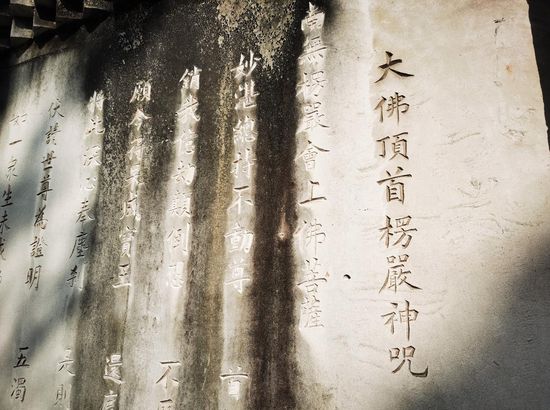 大佛頂首楞嚴神咒
南無楞嚴會上佛菩薩
妙湛總持不動尊 首
銷我億劫顛倒想 不
願今得果成寶王 還
將此深心奉塵刹 是則
伏請世尊為證明 五濁
如一眾生未成